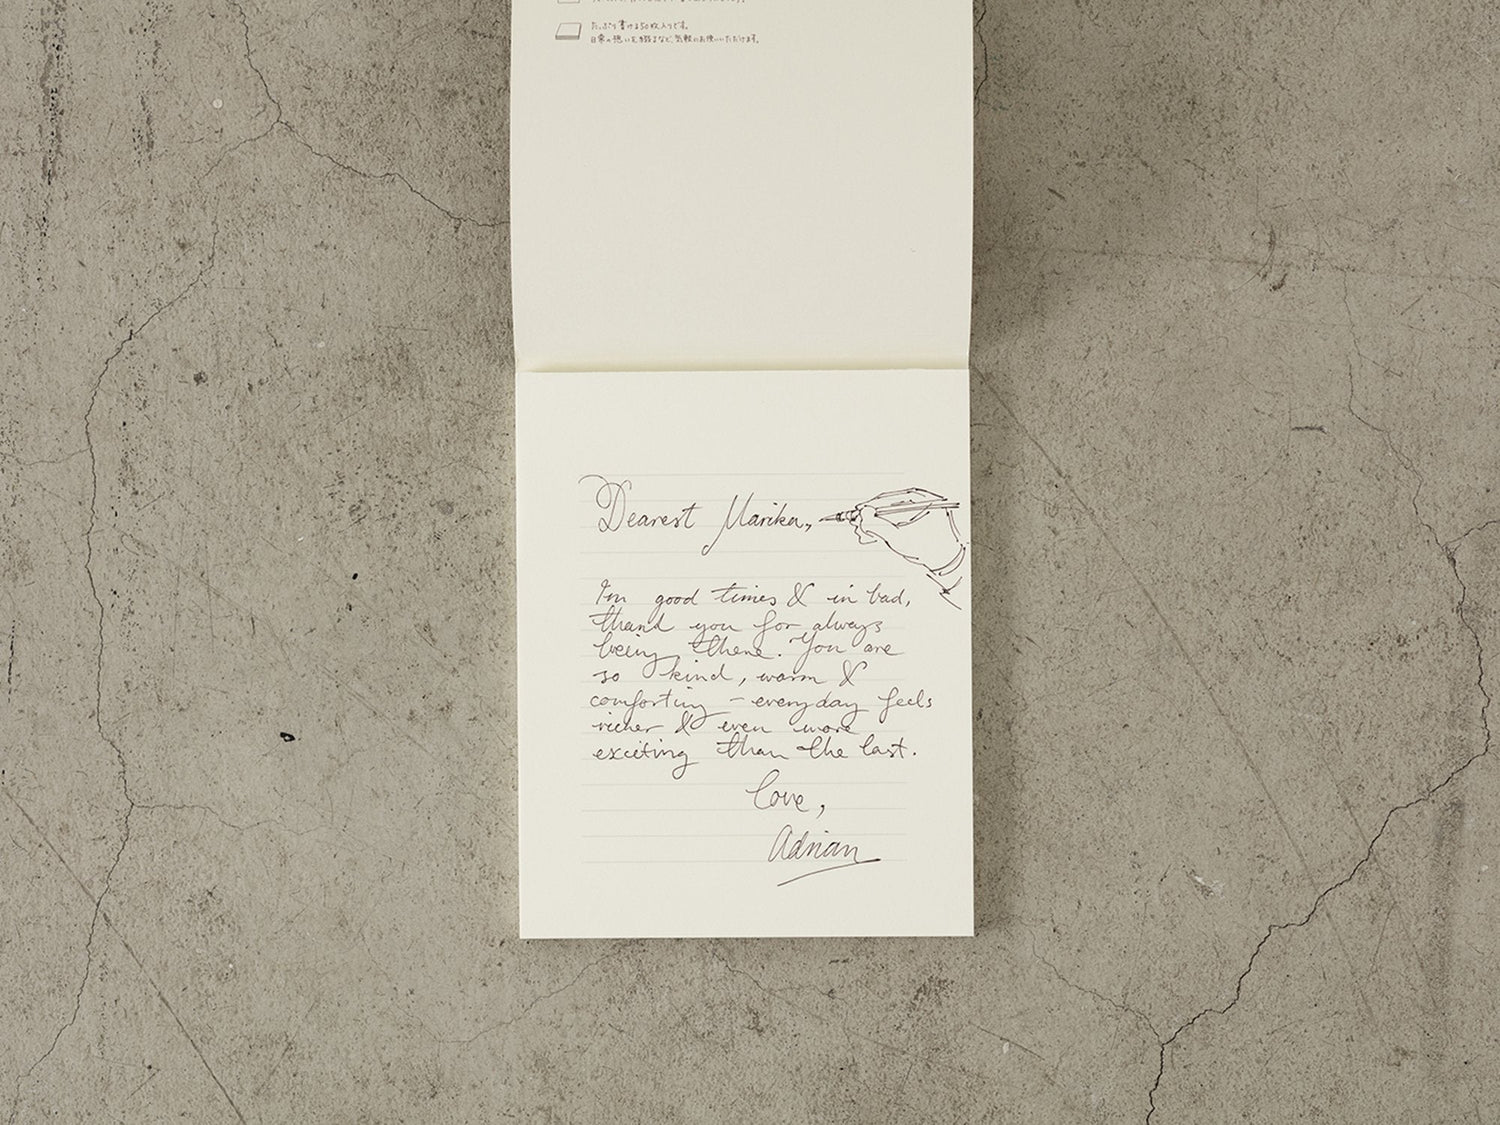 たっぷり書ける50枚入りです。
日常の想いを綴るなど、気軽にお使いいただけます。
Dearest Marika,
In good times & in bad,
thank you for always
being there. You are
so kind, warm &
comforting - everyday feels
richer & even more
exciting than the last.
Love,
Adrian